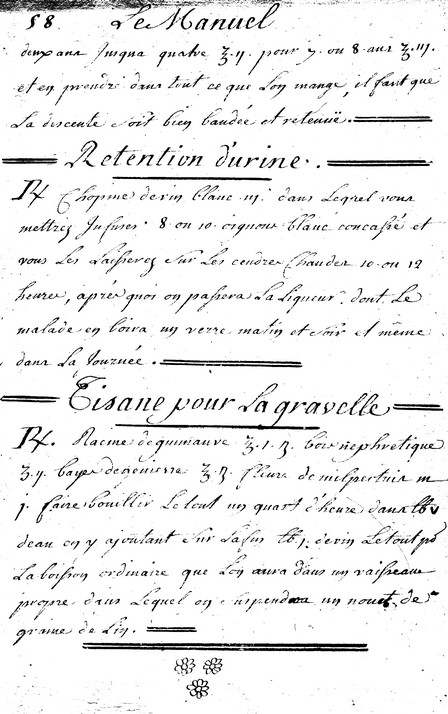 58 Le Manuel
deux ans Jusqua quatre ʒ.ij. pour 7 ou 8 ans ʒ.iij.
et en prendre dans tout ce que Lon mange, il faut que
La descente soit bien bandée et retenuë.
Retention d'urine.
℞ Chopine de vin blanc iij. dans Leqel vous
mettrez Infuser 8 ou 10 oignons blanc concassé et
vous Les Laisserez sur Les cendres Chaudes 10 ou 12
heures, aprés quoi on passera La Liqueur. dont Le
malade en boira un verre matin et soir et même
dans La Journée.
Tisane pour La gravelle
℞. Racine de guimauve ʒ.1.ʒ. bois nephretique
ʒ.ij. baye de genievre ʒ.ʒ. fleurs de milpertuis m
j. faire bouillir Le tout un quart d'heure dans
deau en y ajoutant sur La fin ℔j. de vin Le tout po
La boisson ordinaire que Lon aura dans un vaisseau
propre dans Lequel on suspendra un nouet de
graine de Lin.